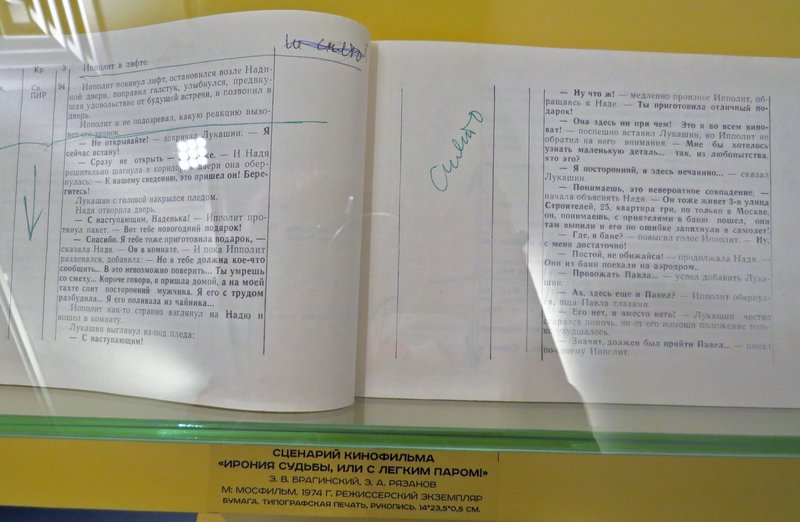 Кр.
3
Ипполит в лифте.
и снято
Ср.
ПНР
94
Ипполит покинул лифт, остановился возле Надиной
двери, поправил галстук, улыбнулся, предвку-
шая удовольствие от будущей встречи, и позвонил в
дверь.
Ипполит и не подозревал, какую реакцию вызо-
вет его звонок.
— Не открывайте! — закричал Лукашин. — Я
сейчас встану!
— Сразу не открыть — И Надя
решительно шагнула в коридор двери она обер-
нулась: — К вашему сведению, это пришел он! Бере-
гитесь!
Лукашин с головой накрылся пледом.
Надя отворила дверь.
— С наступающим, Наденька! — Ипполит про-
тянул пакет. — Вот тебе новогодний подарок!
— Спасибо. Я тебе тоже приготовила подарок, —
сказала Надя. — Он в комнате. — И пока Ипполит
раздевался, добавила: — Но я тебе должна кое-что
сообщить... В это невозможно поверить... Ты умрешь
со смеху... Короче говоря, я пришла домой, а на моей
тахте спит посторонний мужчина. Я его с трудом
разбудила... Я его поливала из чайника...
Ипполит как-то странно взглянул на Надю и
вошел в комнату.
Лукашин выглянул из-под пледа:
— С наступающим!
Снято
— Ну что ж! — медленно произнес Ипполит, об-
ращаясь к Наде. — Ты приготовила отличный по-
дарок!
— Она здесь ни при чем! Это я во всем вино-
ват! — поспешно вставил Лукашин, но Ипполит не
обратил на него внимания. — Мне бы хотелось
узнать маленькую деталь... так, из любопытства,
кто это?
— Я посторонний, я здесь нечаянно... — сказал
Лукашин.
— Понимаешь, это невероятное совпадение, —
начала объяснять Надя. — Он тоже живет 3-я улица
Строителей, 25, квартира три, но только в Москве.
Он, понимаешь, с приятелями в баню пошел, они
там выпили и его по ошибке запихнули в самолет.
— Где, в бане? — повысил голос Ипполит. — Ну,
с меня достаточно!
— Постой, не обижайся! — продолжала Надя. —
Они из бани поехали на аэродром..
— Провожать Павла... — успел добавить Лука-
шин.
— Ах, здесь еще и Павел? — Ипполит обернул-
ся, ища Павла глазами.
— Его нет, я вместо него! — Лукашин честно
старался помочь, но от его помощи положение толь-
ко ухудшалось.
— Значит, должен был прийти Павел... — понял
по-своему Ипполит.
СЦЕНАРИЙ КИНОФИЛЬМА
«ИРОНИЯ СУДЬБЫ, ИЛИ С ЛЕГКИМ ПАРОМ!»
Э. В. БРАГИНСКИЙ, Э. А. РЯЗАНОВ
М: МОСФИЛЬМ. 1974 Г. РЕЖИССЕРСКИЙ ЭКЗЕМПЛЯР
БУМАГА. ТИПОГРАФСКАЯ ПЕЧАТЬ, РУКОПИСЬ. 14*23,5*0,5 СМ.